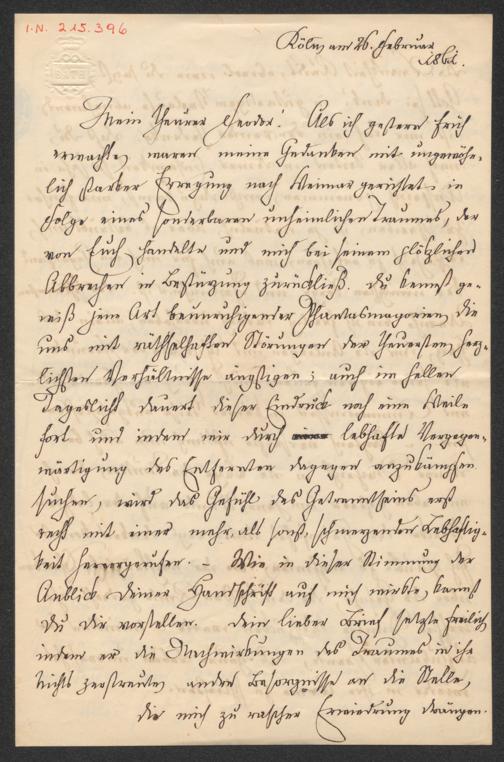 I.N. 215.396
BATH
Köln am 26. Februar
1861.
Mein theurer Theodor! Als ich gestern früh
erwachte, waren meine Gedanken mit ungewöhn-
lich starker Erregung nach Weimar gerichtet, in
Folge eines sonderbaren unheimlichen Traumes, der
von Euch handelte und mich bei seinem plötzlichen
Abbrechen in Bestürzung zurückließ. Du kennst ge-
wiß jene Art beunruhigender Phantasmagorien, die
uns mit räthselhaften Störungen der theuersten, herz-
lichsten Verhältnisse ängstigen; auch im hellen
Tageslicht dauert dieser Eindruck noch eine Weile
fort und indem wir durch lebhafte Vergegen-
wärtigung des Entfernten dagegen anzukämpfen
suchen, wird das Gefühl des Getrenntseins erst
recht mit einer mehr, als sonst, schmerzenden Lebhaftig-
keit hervorgerufen. – Wie in dieser Stimmung der
Anblick Deiner Handschrift auf mich wirkte, kannst
Du Dir vorstellen. Dein lieber Brief setzte freilich
indem er die Nachwirkungen des Traumes in ihr
Nichts zerstreute, andere Besorgnisse an die Stelle,
die mich zu rascher Erwiederung drängen.